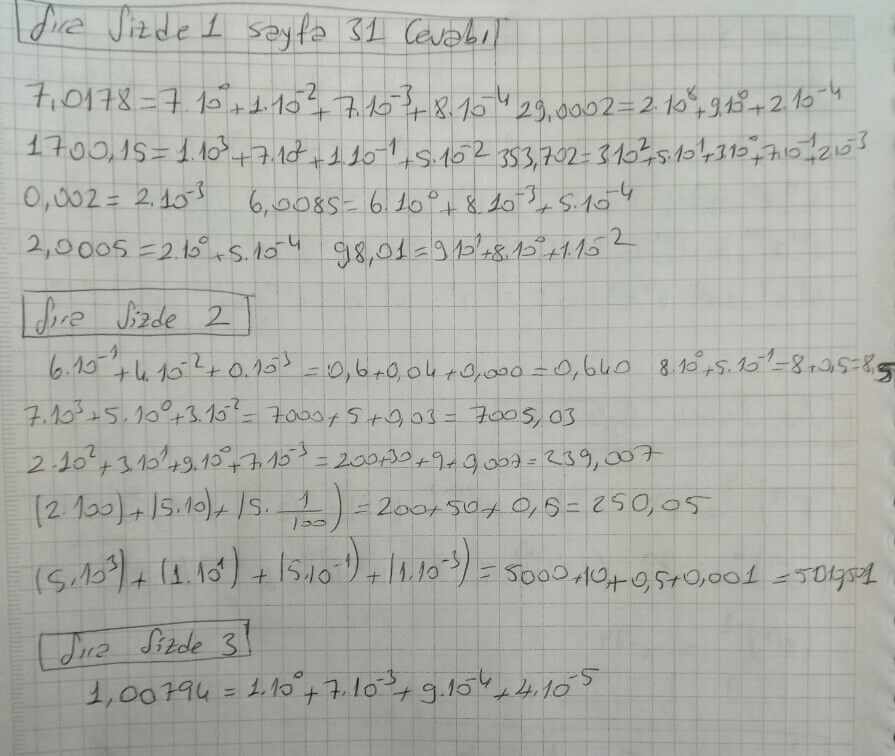 Sıra Sizde 1 sayfa 31 Cevabı
7,0178=7.10⁰+1.10⁻²+7.10⁻³+8.10⁻⁴ 29,0002=2.10⁸+9.10⁰+2.10⁻⁴
1700,15=1.10³+7.10²+1.10⁻¹+5.10⁻² 353,702=3.10²+5.10¹+3.10⁰+7.10⁻¹+2.10⁻³
0,002=2.10⁻³ 6,0085=6.10⁰+8.10⁻³+5.10⁻⁴
2,0005=2.10⁰+5.10⁻⁴ 98,01=9.10¹+8.10⁰+1.10⁻²
Sıra Sizde 2
6.10⁻¹+4.10⁻²+0.10⁻³=0,6+0,04+0,000=0,640 8.10⁰+5.10⁻¹=8+0,5=8,5
7.10³+5.10⁰+3.10⁻²=7000+5+0,03=7005,03
2.10²+3.10¹+9.10⁰+7.10⁻³=200+30+9+0,007=239,007
(2.100)+(5.10)+(5.1/100)=200+50+0,5=250,05
(5.10³)+(1.10¹)+(5.10⁻¹)+(1.10⁻³)=5000+10+0,5+0,001=5010,501
Sıra Sizde 3
1,00794=1.10⁰+7.10⁻³+9.10⁻⁴+4.10⁻⁵